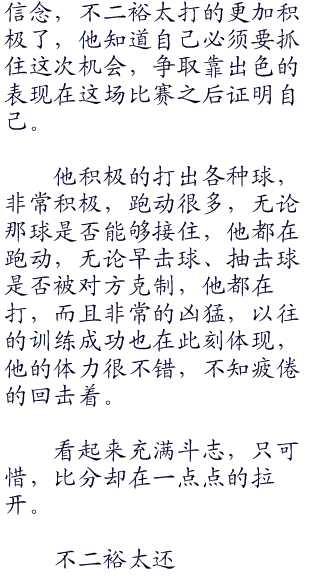 信念，不二裕太打的更加积
极了，他知道自己必须要抓
住这次机会，争取靠出色的
表现在这场比赛之后证明自
己。
他积极的打出各种球，
非常积极，跑动很多，无论
那球是否能够接住，他都在
跑动，无论早击球、抽击球
是否被对方克制，他都在
打，而且非常的凶猛，以往
的训练成功也在此刻体现，
他的体力很不错，不知疲倦
的回击着。
看起来充满斗志，只可
惜，比分却在一点点的拉
开。
不二裕太还